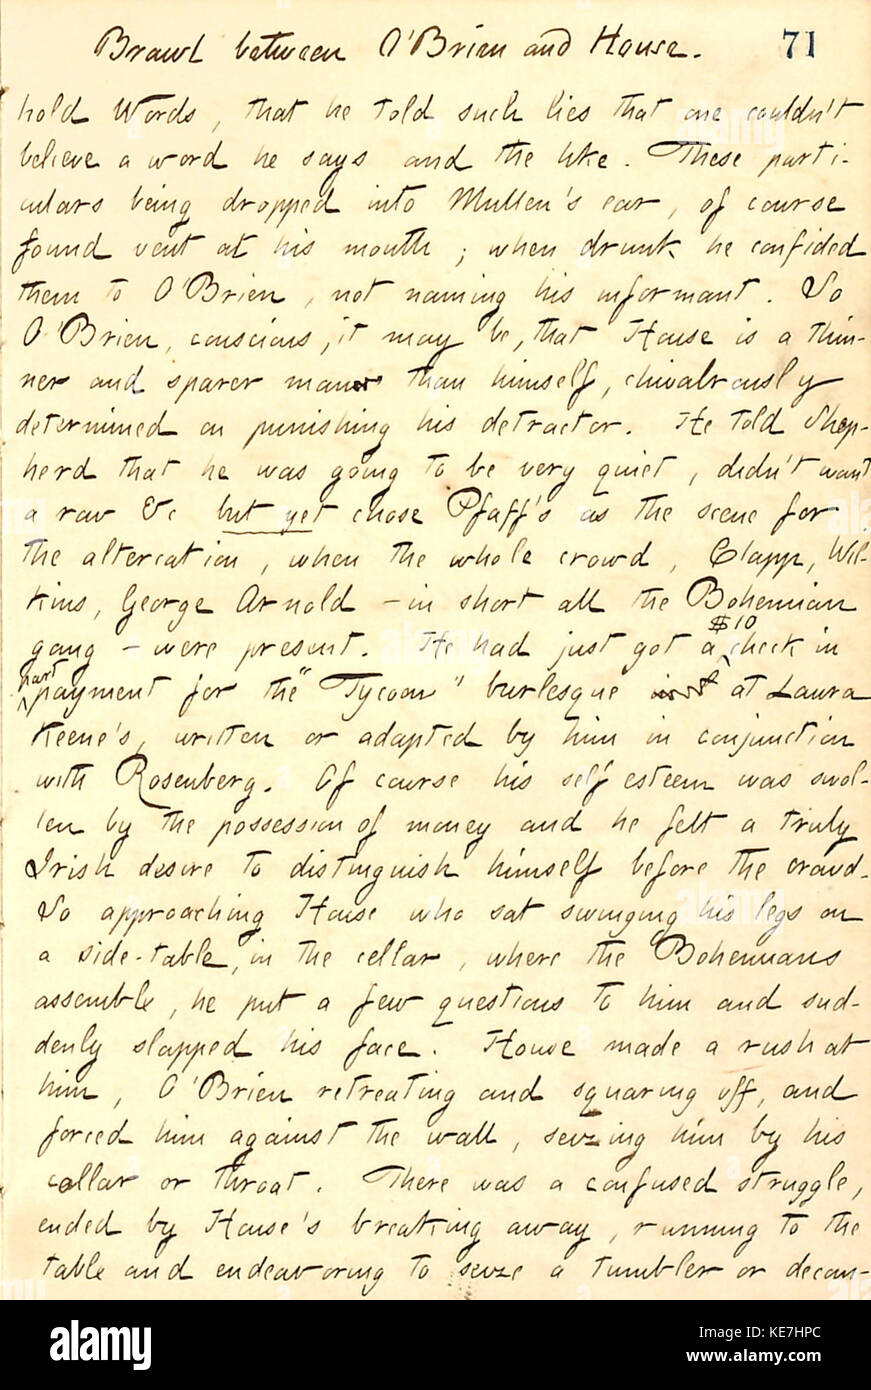 Brawl between O'Brien and House. 71
hold Words, that he told such lies that one couldn't
believe a word he says and the like. These parti-
culars being dropped into Mullen's ear, of course
found vent at his mouth; when drunk he confided
them to O'Brien, not naming his informant. So
O'Brien, conscious, it may be, that House is a thin-
ner and sparer man than himself, chivalrously
determined on punishing his detractor. He told Shep-
herd that he was going to be very quiet, didn't want
a row &c but yet chose Pfaff's as the scene for
the altercation, when the whole crowd, Clapp, Wil-
kins, George Arnold - in short all the Bohemian
gang - were present. He had just got a $10 check in
part payment for the "Tycoon" burlesque at Laura
Keene's, written or adapted by him in conjunction
with Rosenberg. Of course his self esteem was swol-
len by the possession of money and he felt a truly
Irish desire to distinguish himself before the crowd.
So approaching House who sat swinging his legs on
a side-table, in the cellar, where the Bohemians
assemble, he put a few questions to him and sud-
denly slapped his face. House made a rush at
him, O'Brien retreating and squaring off, and
forced him against the wall, seizing him by his
collar or throat. There was a confused struggle,
ended by House's breaking away, running to the
table and endeavoring to seize a tumbler or decan-
alamy stock photo
KE7HPC
www.alamy.com